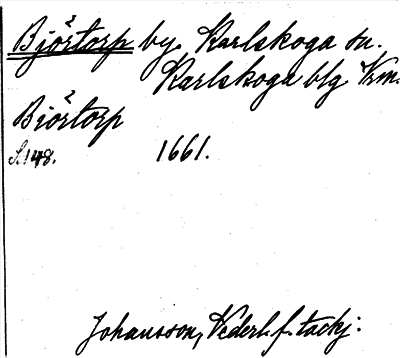 Björtorp by. Karlskoga sn.
Karlskoga blg Vrm.
Biörtorp
S. 148. 1661.
Johansson, Vederl. f. tackj.